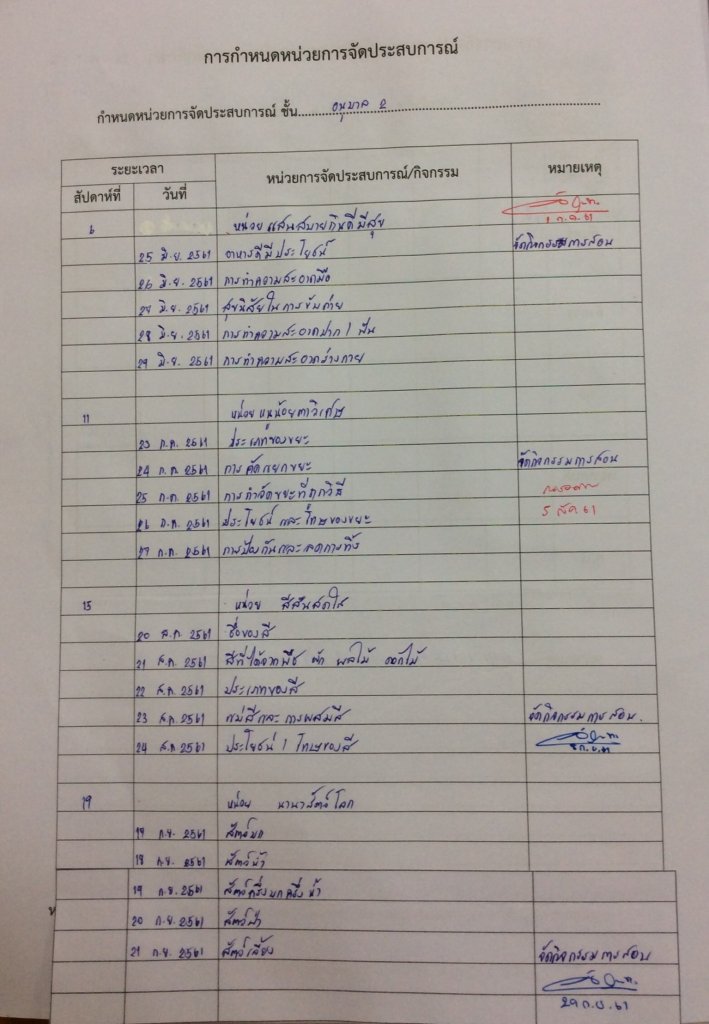 การกำหนดหน่วยการจัดประสบการณ์
กำหนดหน่วยการจัดประสบการณ์ ชั้น......อนุบาล 2......
ระยะเวลา หน่วยการจัดประสบการณ์/กิจกรรม หมายเหตุ
สัปดาห์ที่ วันที่
6 หน่วย แสนสบายกินดีมีสุข ก.ค. 61
25 มิ.ย. 2561 อาหารดีมีประโยชน์ จัดกิจกรรมการสอน
26 มิ.ย. 2561 การทำความสะอาดมือ
27 มิ.ย. 2561 สุขนิสัยในการขับถ่าย
28 มิ.ย. 2561 การทำความสะอาดปาก / ฟัน
29 มิ.ย. 2561 การทำความสะอาดร่างกาย
11 หน่วย หนูน้อยตาวิเศษ
23 ก.ค. 2561 ประเภทของขยะ
24 ก.ค. 2561 การคัดแยกขยะ จัดกิจกรรมการสอน
25 ก.ค. 2561 การกำจัดขยะที่ถูกวิธี
26 ก.ค. 2561 ประโยชน์ และโทษของขยะ 5 ส.ค. 61
27 ก.ค. 2561 การป้องกันและลดการทิ้ง
15 หน่วย สีสันสดใส
20 ส.ค. 2561 ชื่อของสี
21 ส.ค. 2561 สีที่ได้จากพืช ผัก ผลไม้ ดอกไม้
22 ส.ค. 2561 ประเภทของสี
23 ส.ค. 2561 แม่สีและการผสมสี จัดกิจกรรมการสอน.
24 ส.ค. 2561 ประโยชน์ / โทษของสี ก.ย. 61
19 หน่วย นานาสัตว์โลก
17 ก.ย. 2561 สัตว์บก
18 ก.ย. 2561 สัตว์น้ำ
19 ก.ย. 2561 สัตว์ครึ่งบกครึ่งน้ำ
20 ก.ย. 2561 สัตว์ป่า
21 ก.ย. 2561 สัตว์เลี้ยง จัดกิจกรรมการสอน
29 ก.ย. 61